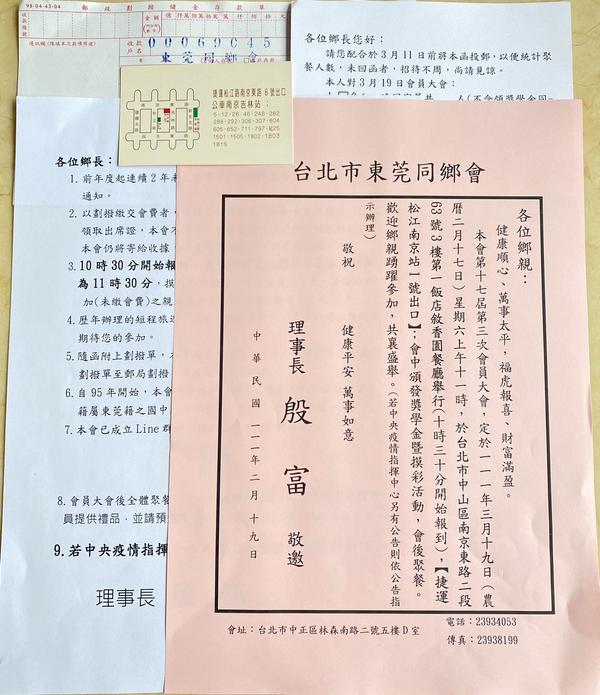 98-04-43-04 郵政劃撥儲金存款單
收款帳號
金額
億仟萬佰萬拾萬萬仟佰拾元
00069C45
通訊欄(限與本次存款有關事項)
收款戶名
東莞同鄉會
捷運松江路南京東路8號出口
公車南京吉林站：
5-12-26-46-248-282
288-292-306-307-604
605-652-711-797-紅25
1501-1505-1802-1803
1815
各位鄉長您好：
請您配合於3月11日前將本函投郵，以便統計聚
餐人數，未回函者，招待不周，尚請見諒。
本人對3月19日會員大會：
各位鄉長：
1. 前年度起連續2年未
通知。
2. 以劃撥繳交會費者，
領取出席證，本會不
本會仍將寄給收據，
3. 10時30分開始報
為11時30分，摸
加(未繳會費)之親
4. 歷年辦理的短程旅遊
期待您的參加。
5. 隨函附上劃撥單，
劃撥單至郵局劃撥
6. 自95年開始，本會
籍屬東莞籍之國中
7. 本會已成立Line群
8. 會員大會後全體聚餐
員提供禮品，並請預
9. 若中央疫情指揮
理事長
台北市東莞同鄉會
各位鄉親：
健康順心、萬事太平，福虎報喜、財富滿盈。
本會第十七屆第三次會員大會，定於一一一年三月十九日（農
曆二月十七日）星期六上午十一時，於台北市中山區南京東路二段
63號3樓第一飯店敘香園餐廳舉行(十時三十分開始報到)，【捷運
松江南京站一號出口】；會中頒發獎學金暨摸彩活動，會後聚餐。
歡迎鄉親踴躍參加，共襄盛舉。(若中央疫情指揮中心另有公告則依公告指
示辦理)
敬祝
健康平安 萬事如意
理事長 殷富 敬邀
中華民國一一一年二月十九日
會址：台北市中正區林森南路二號五樓D室
電話：23934053
傳真：23938199